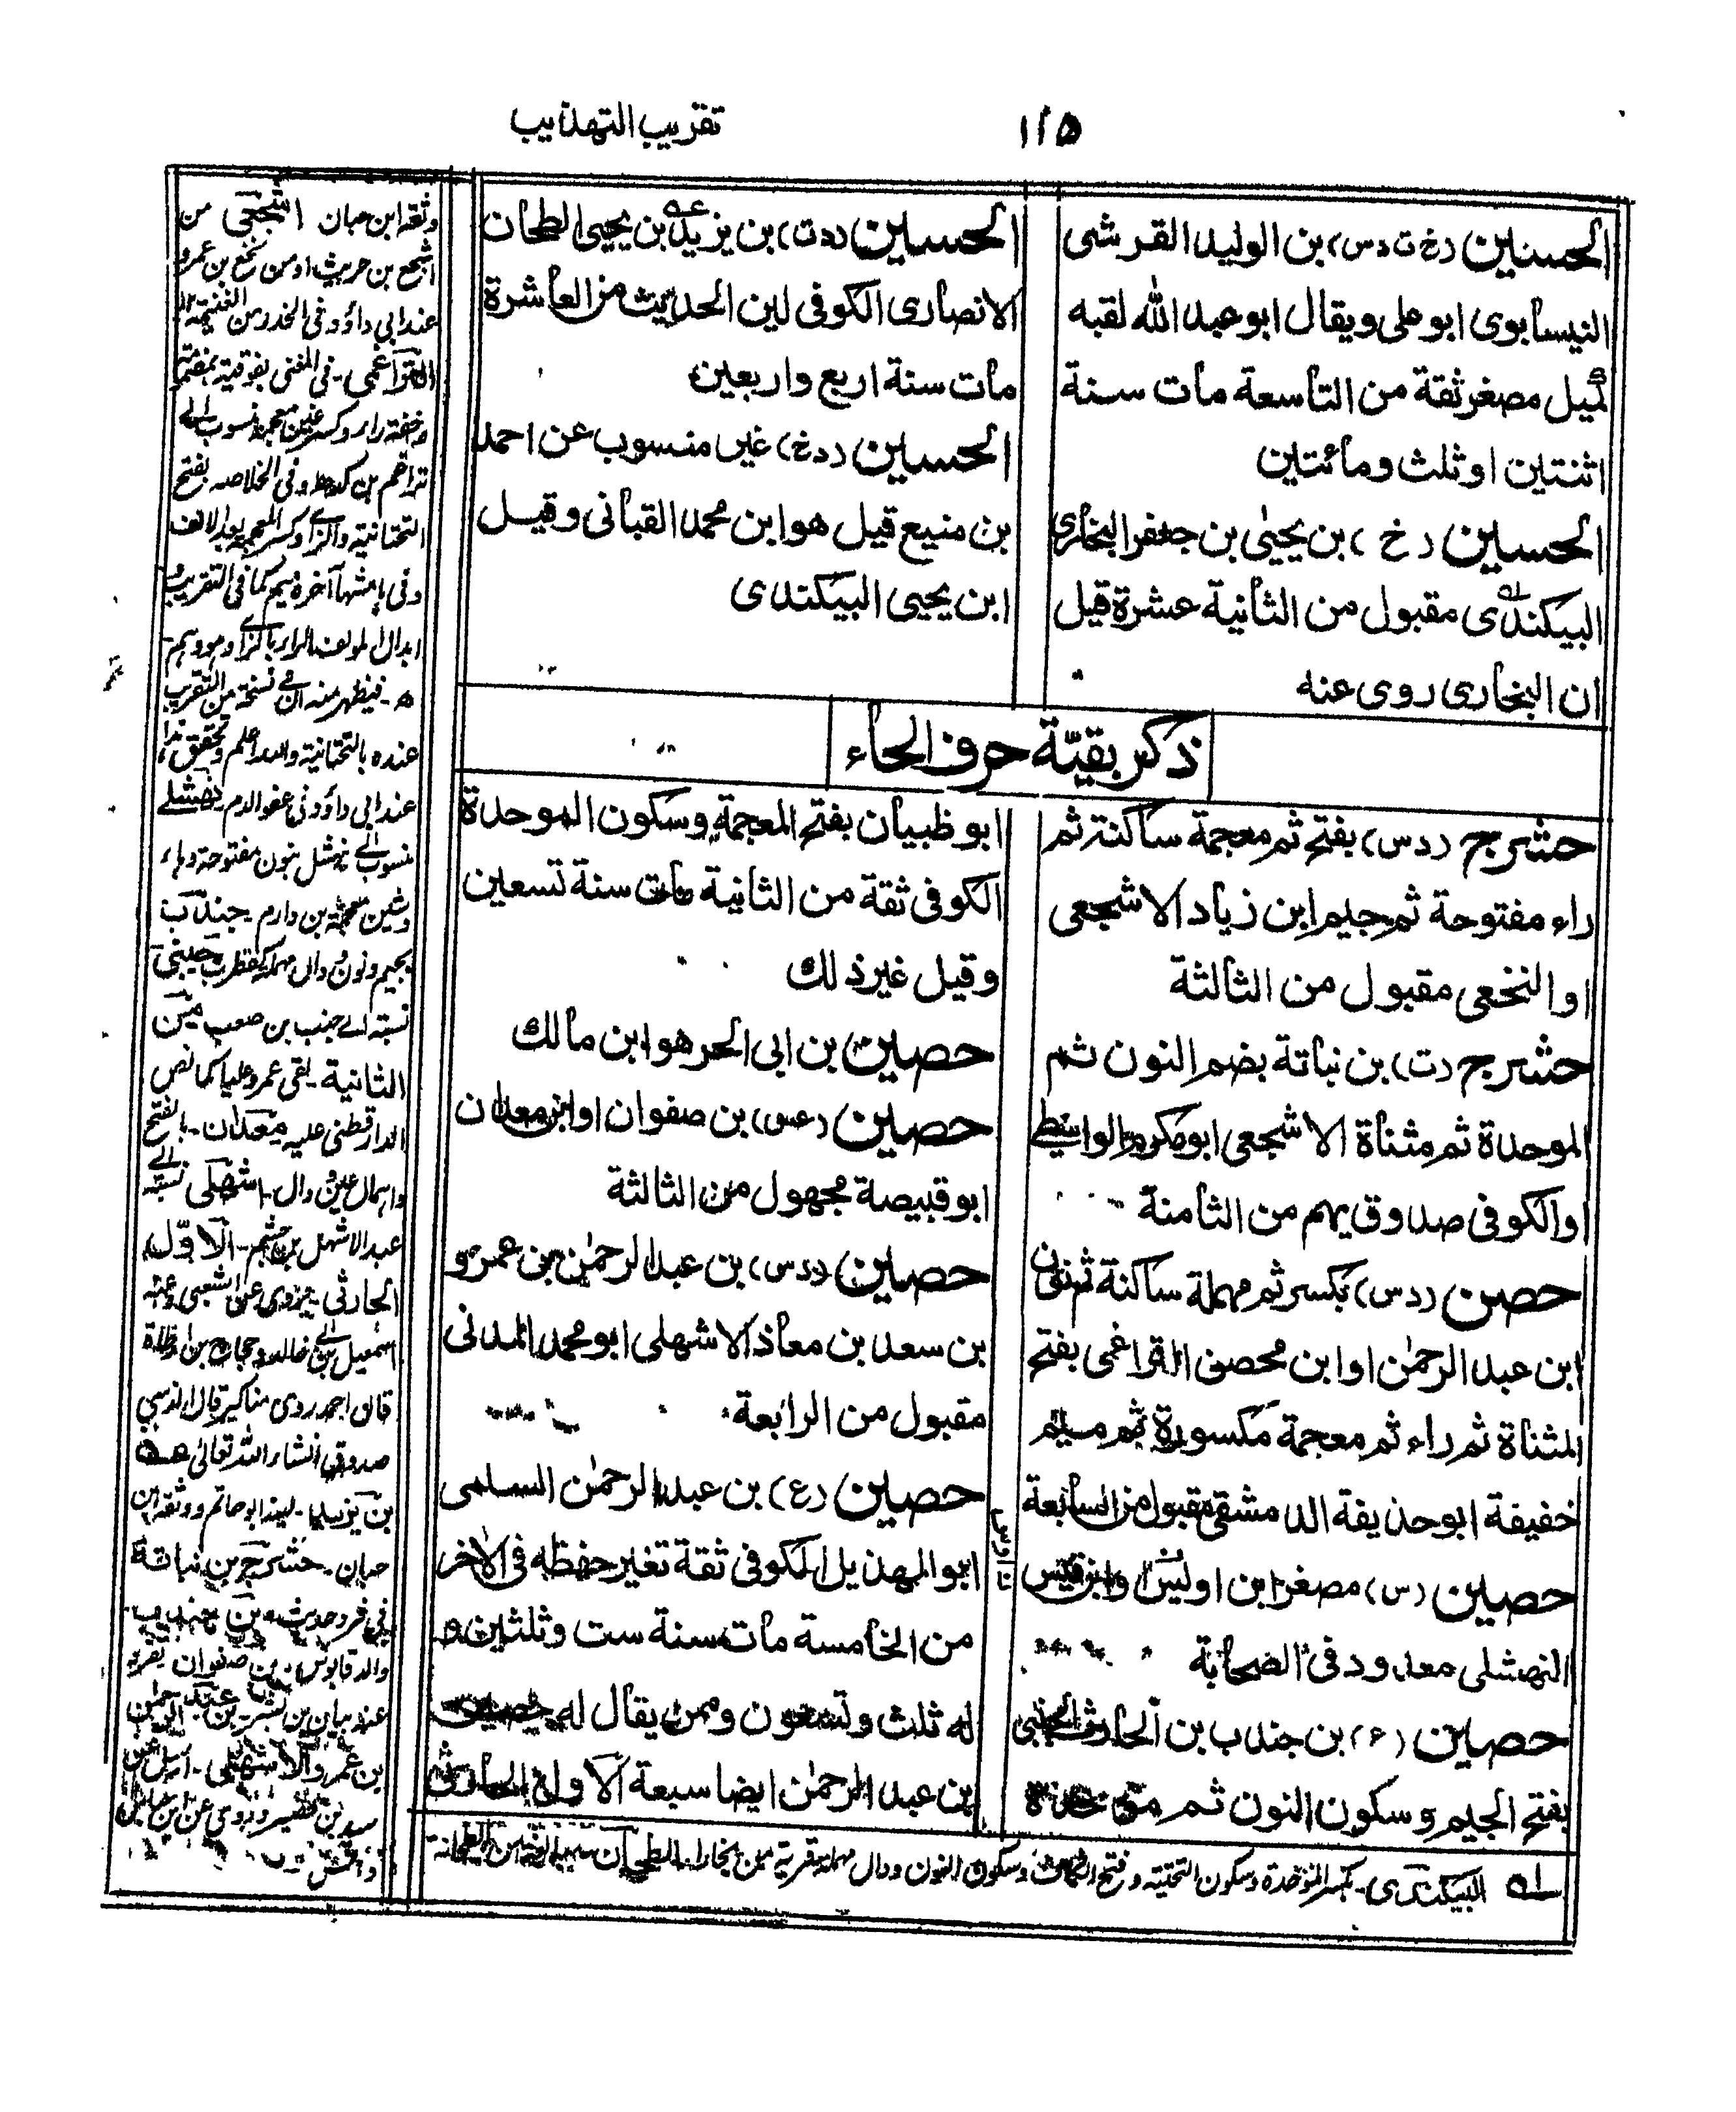 ١٢٥
تقريب التهذيب
الحسنين (خ ت د س) بن الوليد القرشى
النيسابوى ابو على ويقال ابو عبد الله لقبه
كميل مصغر ثقة من التاسعة مات سنة
اثنتين او ثلث ومائتين
الحسين (خ) بن يحيى بن جعفر البخارى
البيكندى مقبول من الثانية عشرة قيل
ان البخارى روى عنه
الحسين (د ت) بن يزيد بن يحيى الطحان
الانصارى الكوفى لين الحديث من العاشرة
مات سنة اربع واربعين
الحسين (د خ) غير منسوب عن احمد
بن منيع قيل هو ابن محمد القبانى وقيل
ابن يحيى البيكندى
ذكر بقيّة حرف الحاء
حشرج (د س) بفتح ثم معجمة ساكنة ثم
راء مفتوحة ثم جيم ابن زياد الاشجعى
او النخعى مقبول من الثالثة
حشرج (ت) بن نباتة بضم النون ثم
الموحدة ثم مثناة الاشجعى ابو مكرم الواسطى
او الكوفى صدوق يهم من الثامنة
حصن (د س) بكسر ثم مهملة ساكنة ثم نون
ابن عبد الرحمٰن او ابن محصن التراغمى بفتح
المثناة ثم راء ثم معجمة مكسورة ثم ميم
خفيفة ابو حذيفة الدمشقى مقبول من السابعة
حصين (س) مصغر ابن اوس او ابن قيس
النهشلى معدود فى الصحابة
حصين (ع) بن جندب بن الحارث الجنبى
بفتح الجيم وسكون النون ثم موحدة
ابو ظبيان بفتح المعجمة وسكون الموحدة
الكوفى ثقة من الثانية مات سنة تسعين
وقيل غير ذلك
حصين بن ابى الحر هو ابن مالك
حصين (عس) بن صفوان او ابن معدان
ابو قبيصة مجهول من الثالثة
حصين (د س) بن عبد الرحمٰن بن عمرو
بن سعد بن معاذ الاشهلى ابو محمد المدنى
مقبول من الرابعة
حصين (ع) بن عبد الرحمٰن السلمى
ابو الهذيل الكوفى ثقة تغير حفظه فى الاخر
من الخامسة مات سنة ست وثلثين و
له ثلث وتسعون وممن يقال له حصين
بن عبد الرحمٰن ايضا سبعة الاول الحارثى
وثقه ابن حبان اشجعى من
اشجع بن حريث او من نخع بن عمرو
عند ابى داؤد فى
التراغمى - فى المغنى بفوقية
وخفة راء وكسر غين معجمة منسوب الى
وفى الخلاصة بفتح
التحتانية والزاى وكسر المعجمة بعد الالف
وفى هامشها آخره ميم كما فى التقريب
ابدال المولف الراء بالزاى وهو وهم
فيظهر منه ان فى نسخة من التقريب
عنده بالتحتانية والله اعلم
عند ابى داؤد فى عفو الدم نهشلى
منسوب الى نهشل بنون مفتوحة وهاء
وشين معجمة بن دارم - جندب
بجيم ونون ودال مهملة جنبى
نسبة الى جنب بن صعب من
الثانية - لقى عمر وعليا كما نص
الدارقطنى عليه معدان - بالفتح
واہمال عين ودال - اشهلى نسبة الى
عبد الاشهل بن جشم - الاوّل
الحارثى - يروى عن الشعبى وعنه
اسمعيل بن ابى خالد وحجاج بن ارطاة
قال احمد روى مناكير قال الذهبى
صدوق انشاء الله تعالى
بن يزيد - لينه ابو حاتم ووثقه ابن
حبان - حشرج بن نباتة
والد قابوس - بن صفوان
عنه بيان بن بشر - بن عبد الرحمن
بن عمرو الاشهلى - ارسل عن
البيكندى - بكسر الموحدة وسكون التحتية وفتح الكاف وسكون النون ودال مهملة قرية من بخارا - الطحان